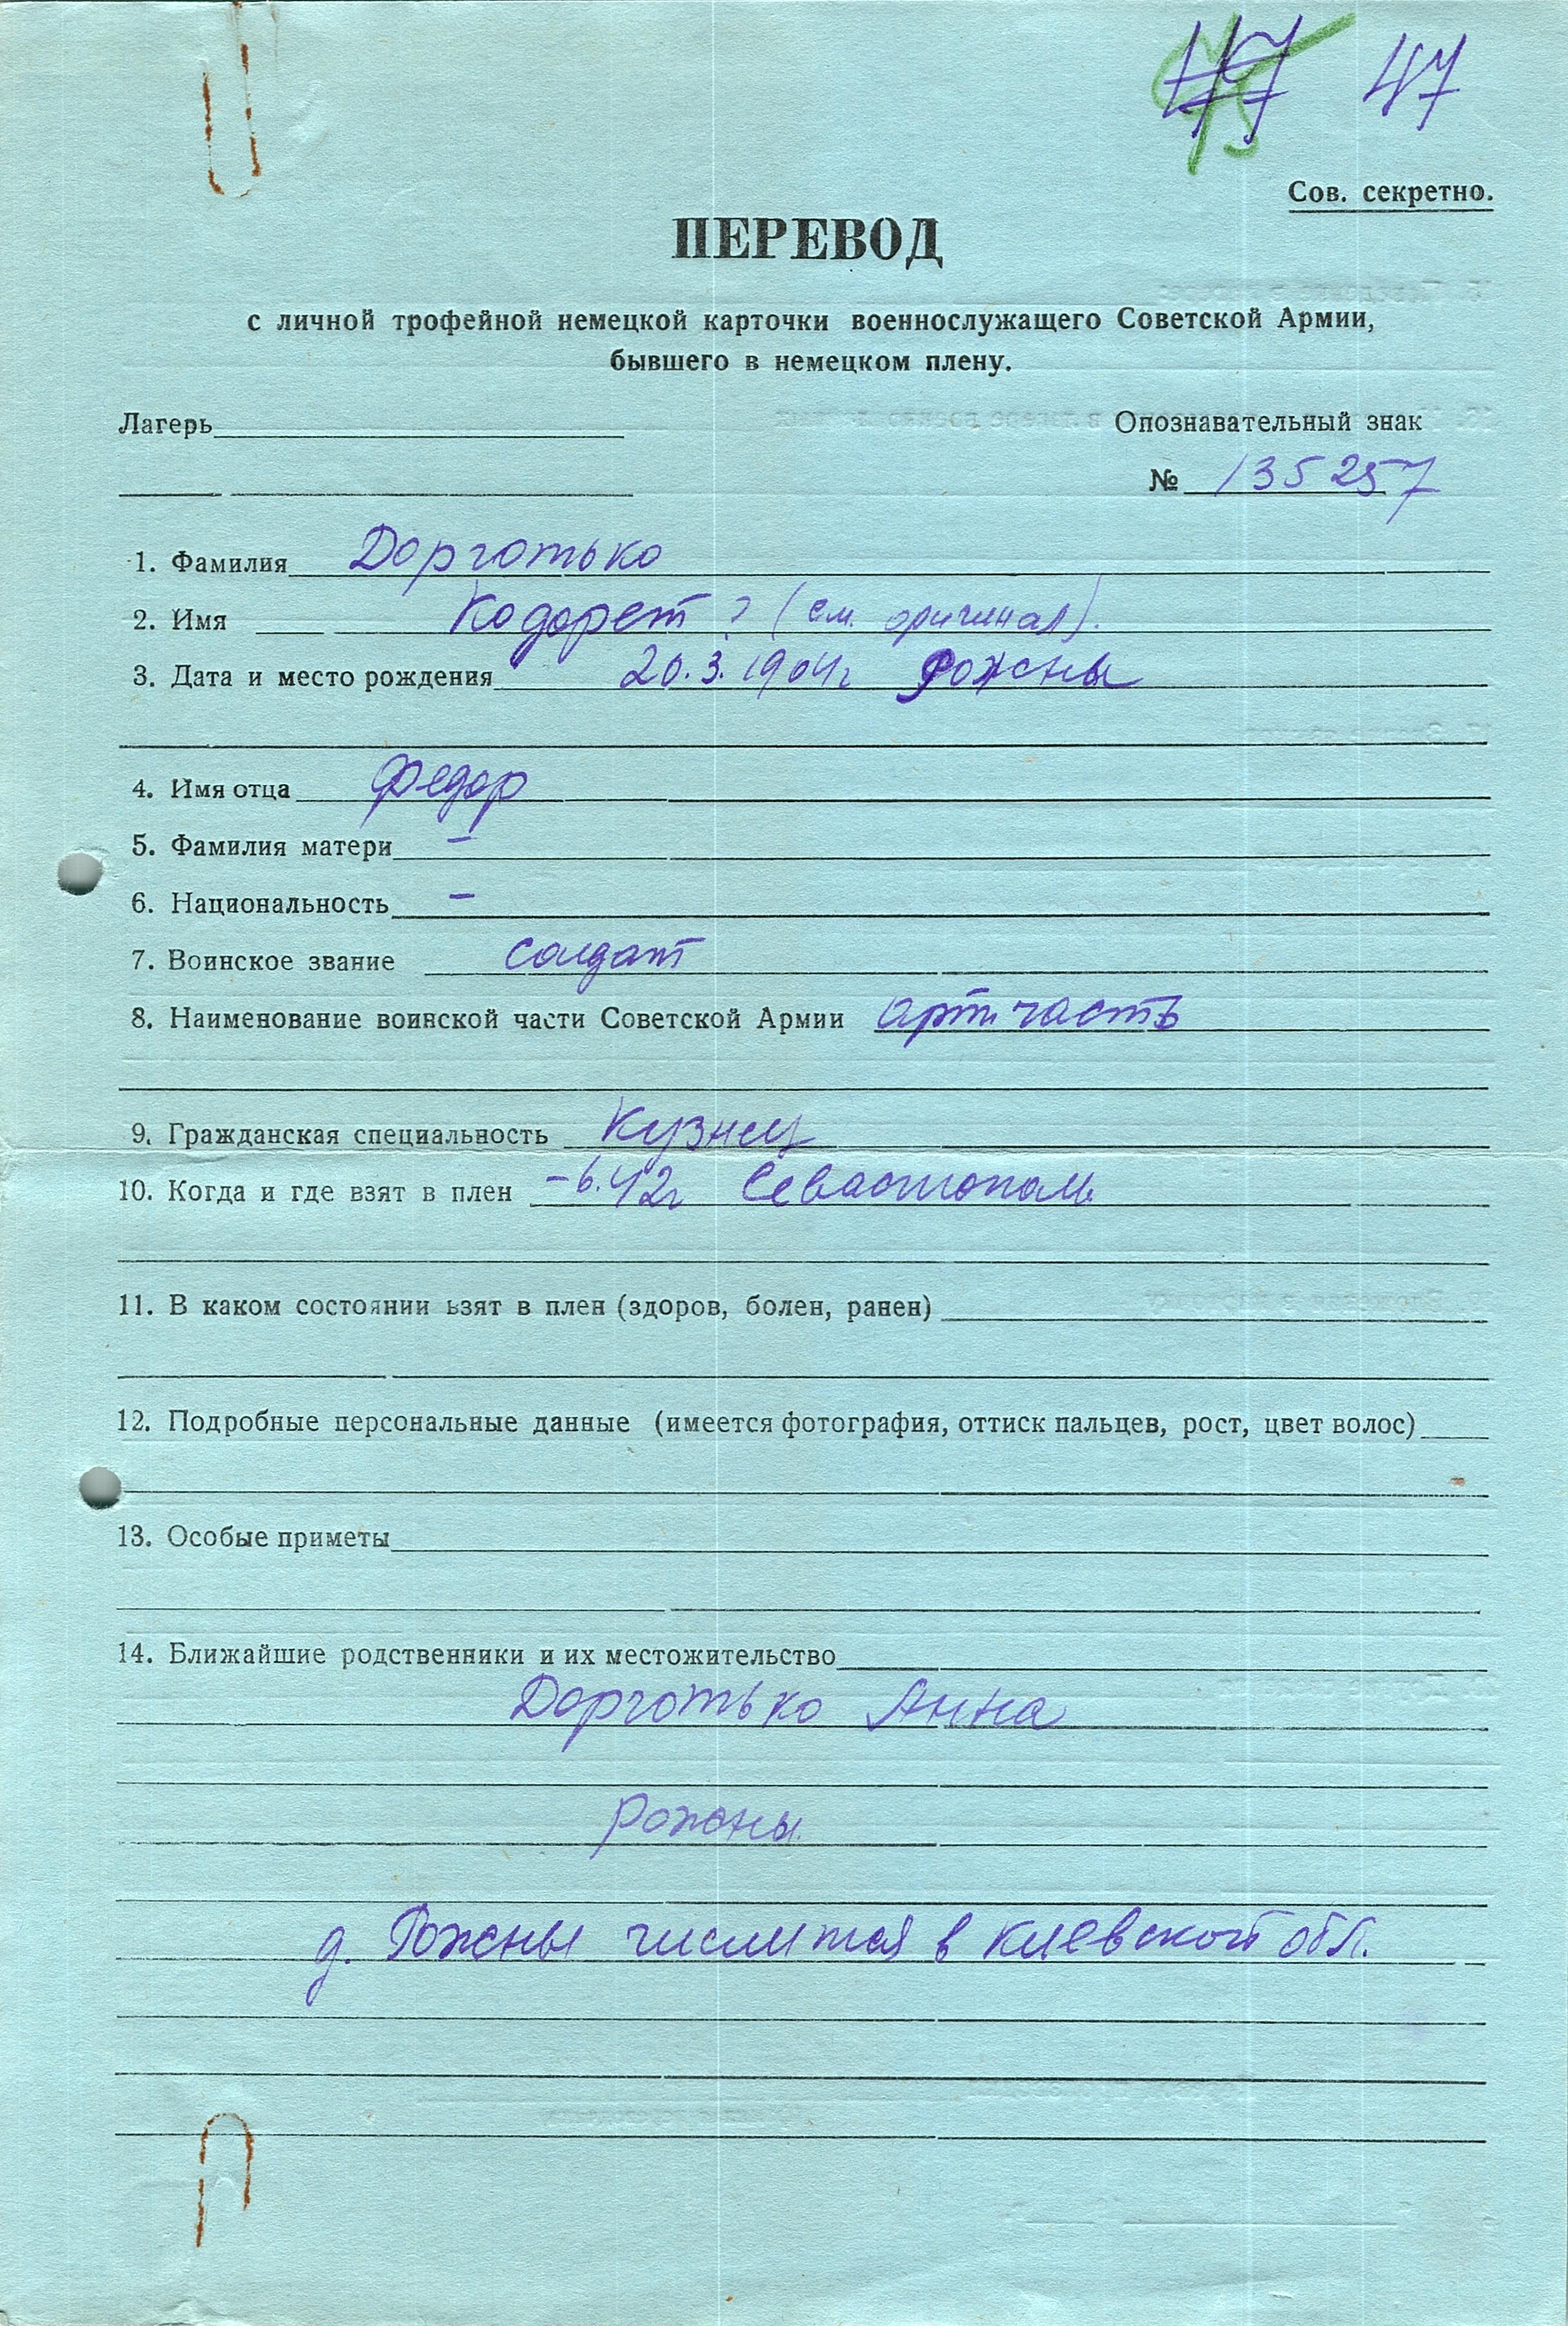 47 47
Сов. секретно.
ПЕРЕВОД
с личной трофейной немецкой карточки военнослужащего Советской Армии,
бывшего в немецком плену.
Лагерь Опознавательный знак
№ 135257
1. Фамилия Дорготько
2. Имя Кодорет ? (см. оригинал).
3. Дата и место рождения 20.3.1904г Рожны
4. Имя отца Федор
5. Фамилия матери —
6. Национальность —
7. Воинское звание солдат
8. Наименование воинской части Советской Армии арт. часть
9. Гражданская специальность Кузнец
10. Когда и где взят в плен -6.42г Севастополь
11. В каком состоянии взят в плен (здоров, болен, ранен)
12. Подробные персональные данные (имеется фотография, оттиск пальцев, рост, цвет волос)
13. Особые приметы
14. Ближайшие родственники и их местожительство
Дорготько Анна
Рожны.
д. Рожны числится в Киевской обл.